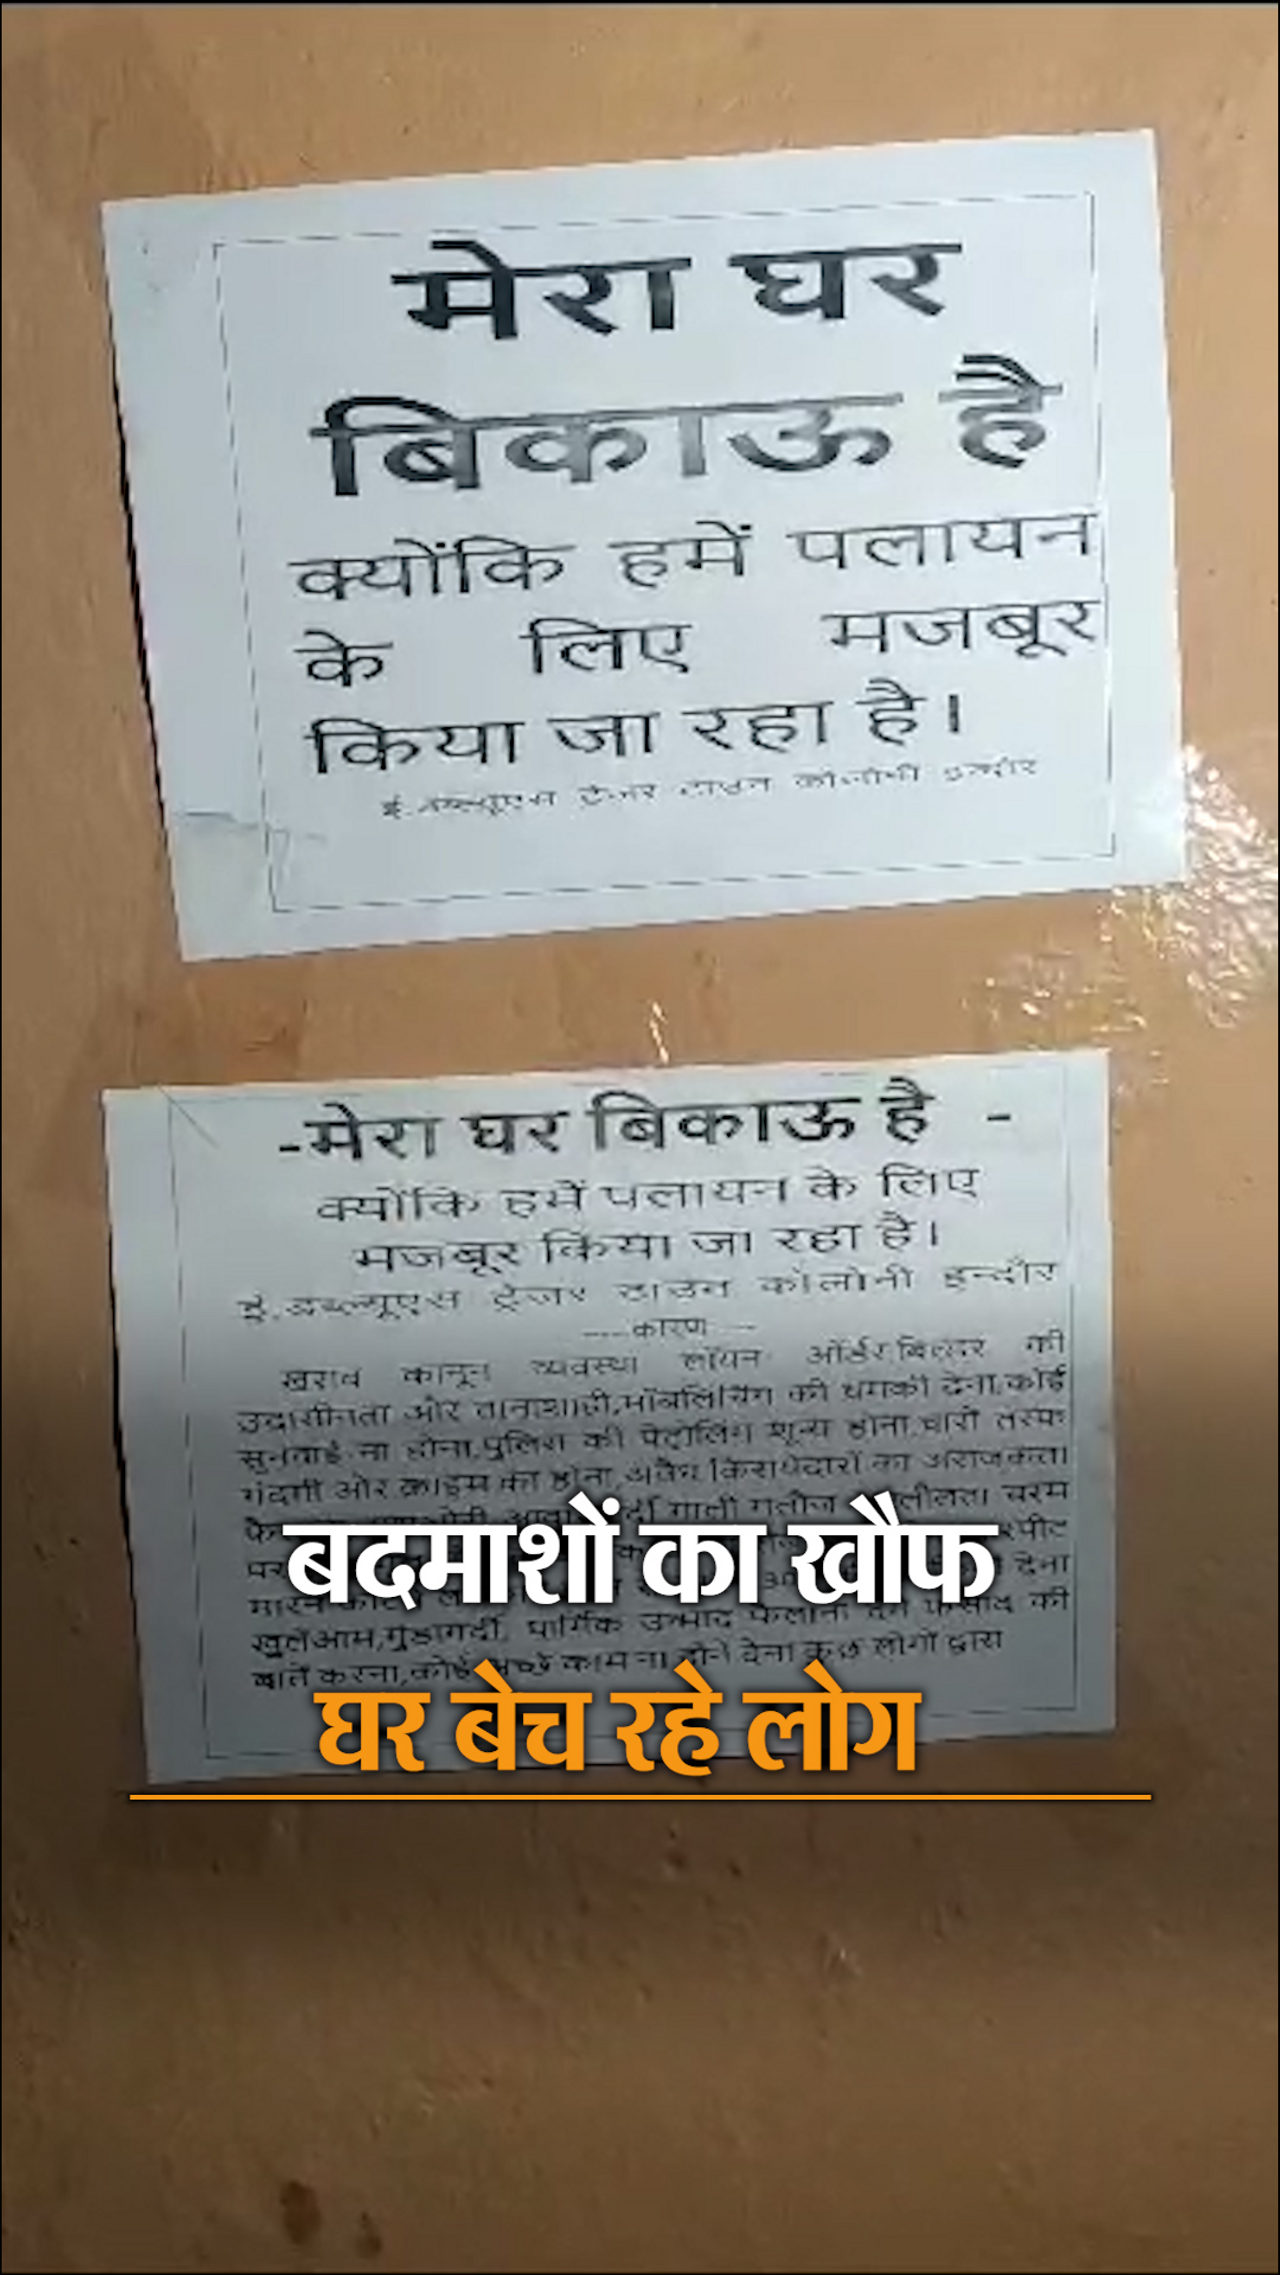 मेरा घर
बिकाऊ है
क्योंकि हमें पलायन
के लिए मजबूर
किया जा रहा है।
ई.डब्ल्यूएस ट्रेजर टाउन कॉलोनी इन्दौर
-मेरा घर बिकाऊ है -
क्योंकि हमें पलायन के लिए
मजबूर किया जा रहा है।
ई.डब्ल्यूएस ट्रेजर टाउन कॉलोनी इन्दौर
---कारण---
खराब कानून व्यवस्था लॉयन ऑर्डर बिल्डर की
उदासीनता और तानाशाही,मॉबलिंचिंग की धमकी देना,कोई
सुनवाई ना होना,पुलिस की पेट्रोलिंग शून्य होना,चारो तरफ
गंदगी और क्राइम का होना,अवैध किरायेदारों का अराजकता
गाली गलोज चरम
देना
खुलेआम,गुंडागर्दी, धार्मिक उन्माद फैलाना दंगे फसाद की
बाते करना,कोई अच्छे काम ना होने देना कुछ लोगों द्वारा
बदमाशों का खौफ
घर बेच रहे लोग